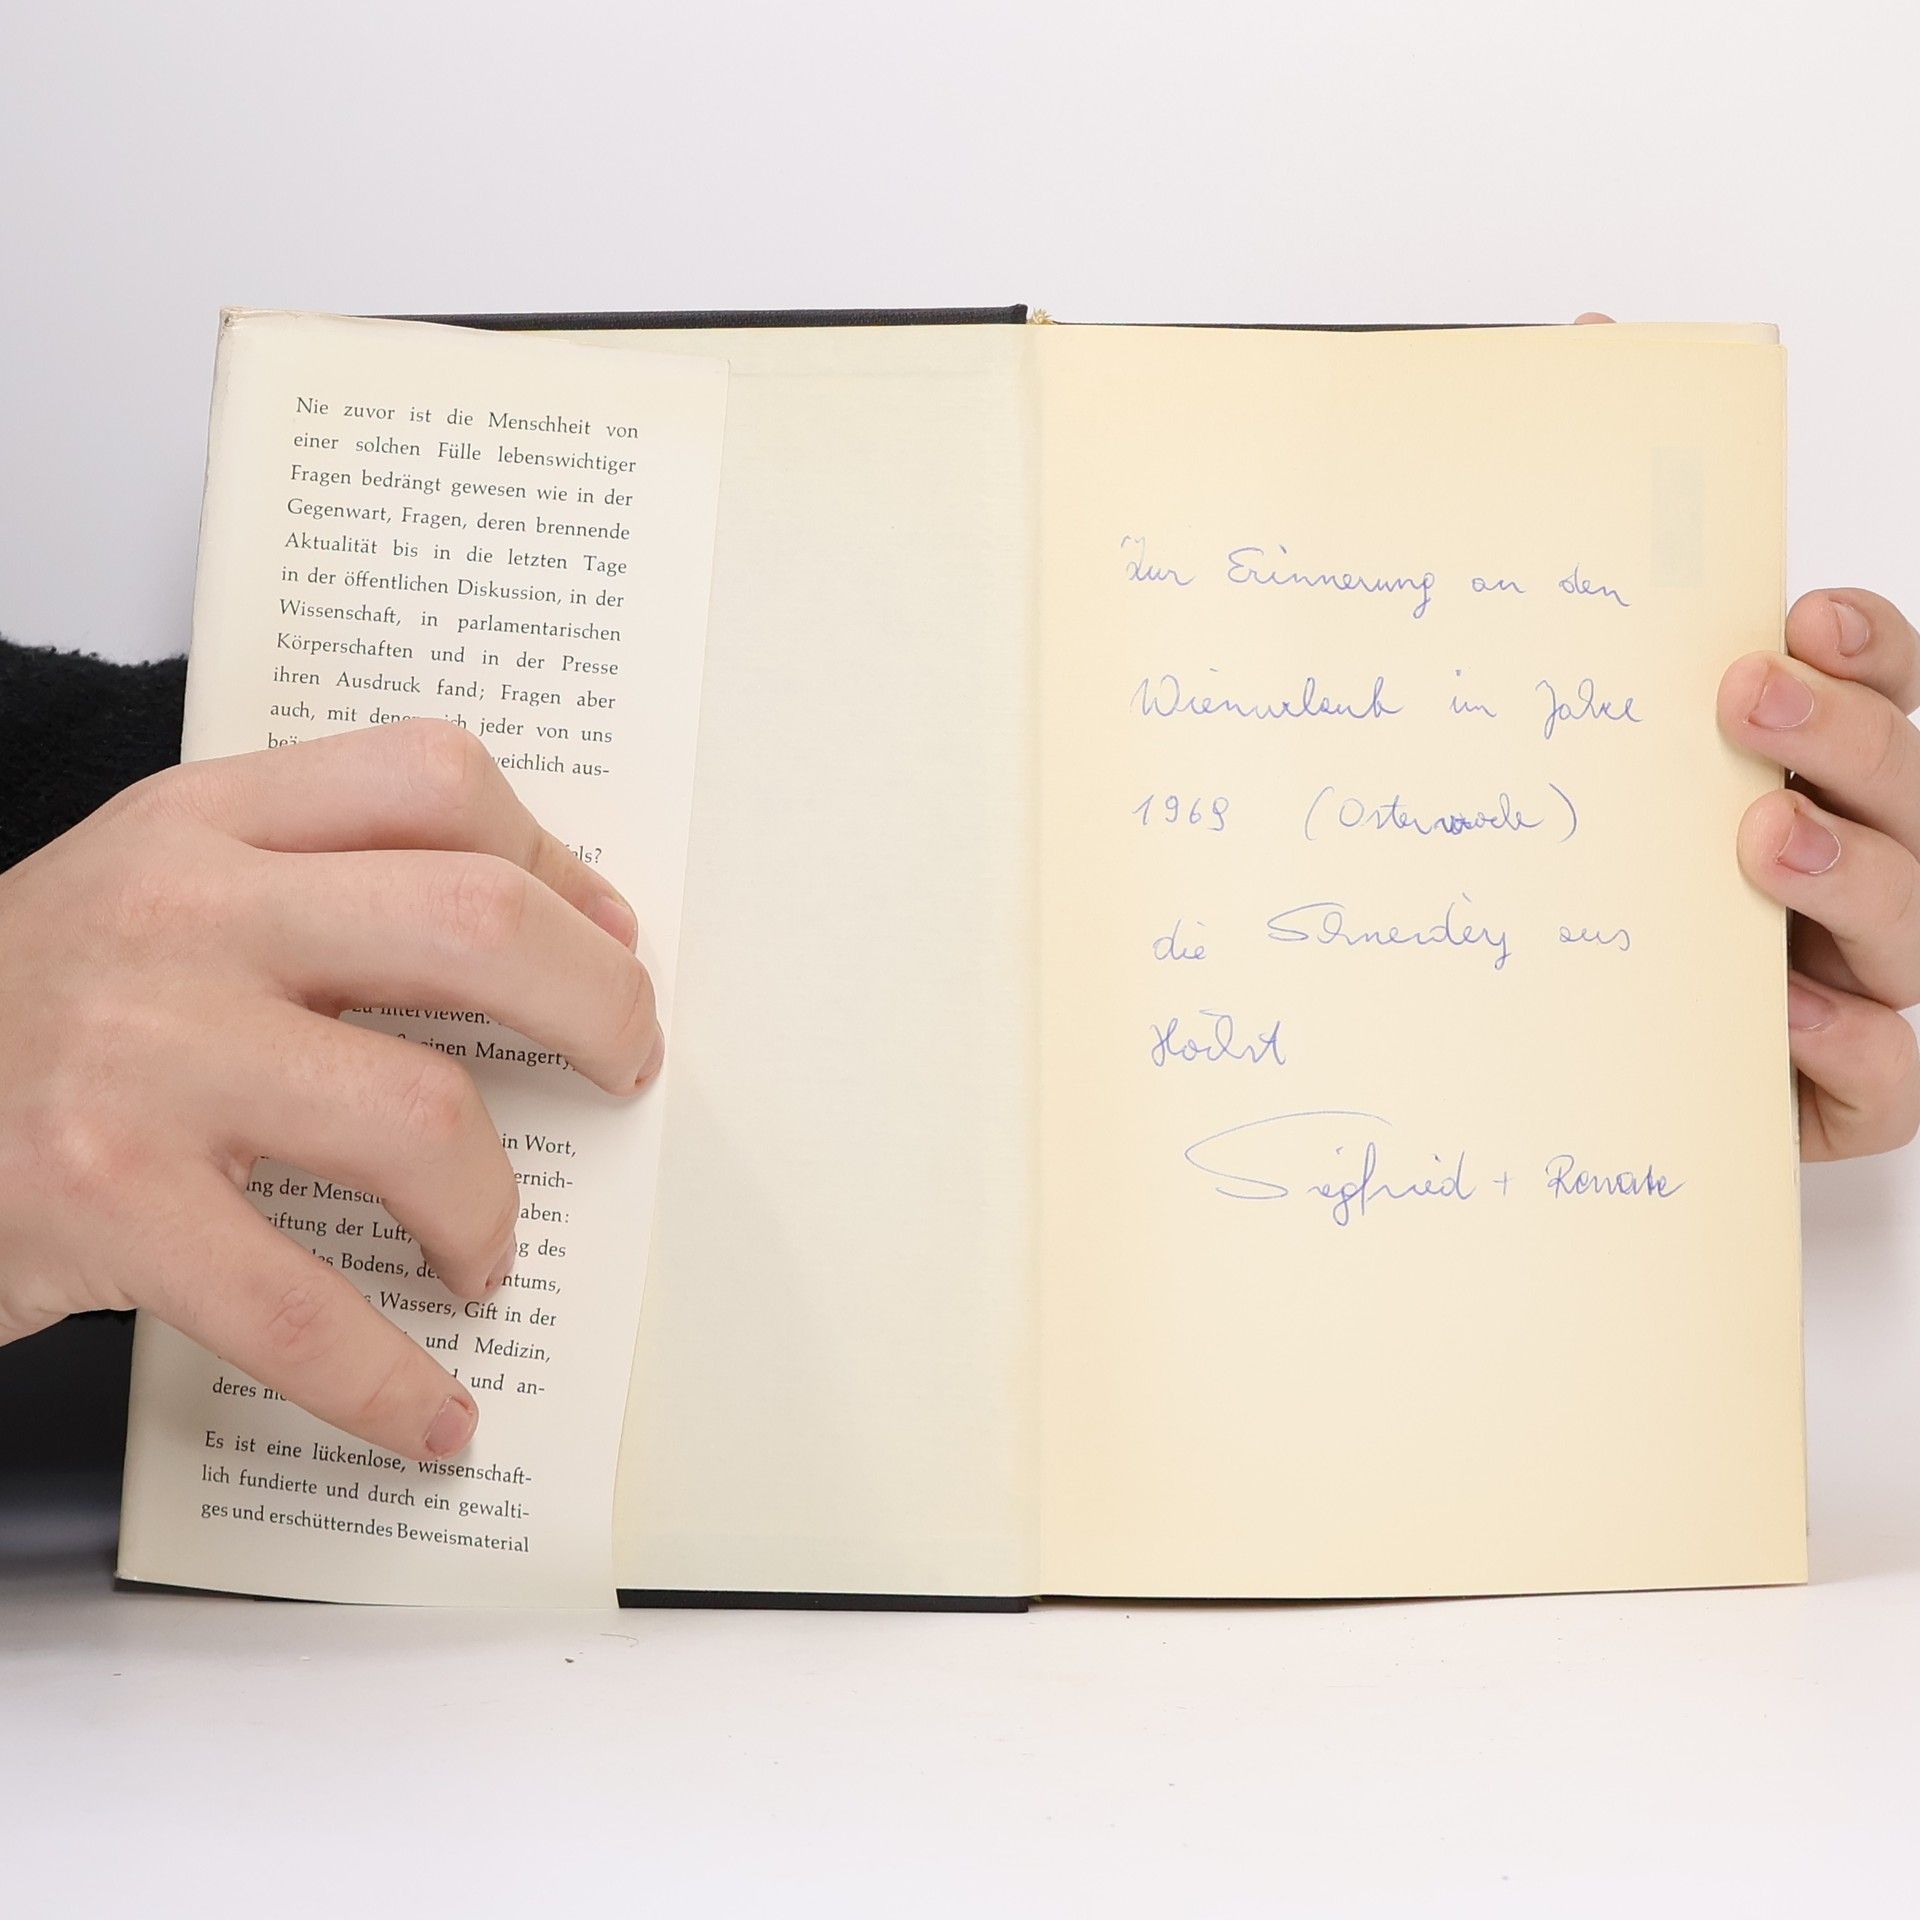 Nie zuvor ist die Menschheit von
einer solchen Fülle lebenswichtiger
Fragen bedrängt gewesen wie in der
Gegenwart, Fragen, deren brennende
Aktualität bis in die letzten Tage
in der öffentlichen Diskussion, in der
Wissenschaft, in parlamentarischen
Körperschaften und in der Presse
ihren Ausdruck fand; Fragen aber
auch, mit jeder von uns
aus-
zu interviewen.
einen
in Wort,
der
der Luft, des
Bodens,
Wassers, Gift in der
und Medizin,
und an-
deres
Es ist eine lückenlose, wissenschaft-
lich fundierte und durch ein gewalti-
ges und erschütterndes Beweismaterial
Zur Erinnerung an den
Wienurlaub im Jahre
1969 (Osterwoche)
die aus
Höchst
Siegfried + Renate